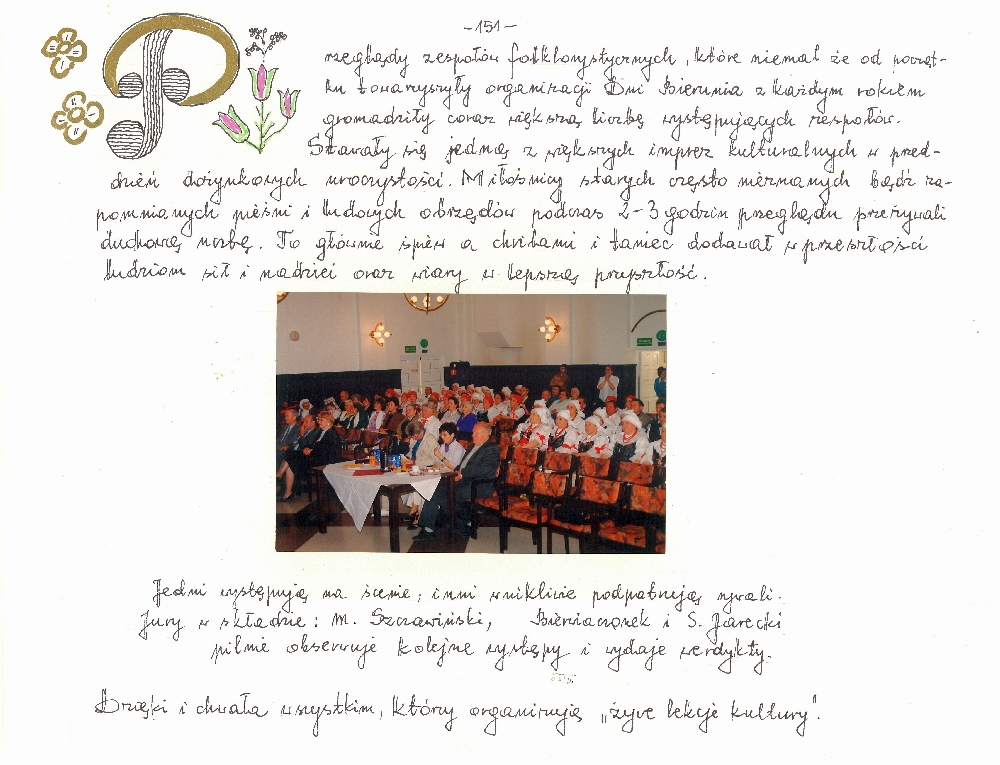 -151-
Przeglądy zespołów folklorystycznych, które niemal że od począt-
ku towarzyszyły organizacji Dni Bierunia z każdym rokiem
gromadziły coraz większą liczbę występujących zespołów.
Stawały się jedną z większych imprez kulturalnych w przed-
dzień dożynkowych uroczystości. Miłośnicy starych często nieznanych bądź za-
pomnianych pieśni i ludowych obrzędów podczas 2-3 godzin przeglądu przeżywali
duchową ucztę. To głównie śpiew a chwilami i taniec dodawał w przeszłości
ludziom sił i nadziei oraz wiary w lepszą przyszłość.
Jedni występują na scenie, inni wnikliwie podpatrują rywali.
Jury w składzie: M. Szczawiński, Bierwiaczonek i S. Jarecki
pilnie obserwuje kolejne występy i wydaje werdykty.
Dzięki i chwała wszystkim, którzy organizują „żywe lekcje kultury".